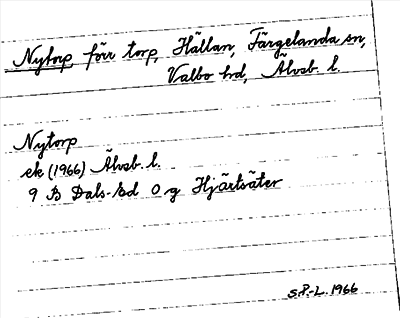 Nytorp förr torp, Hällan, Färgelanda sn,
Valbo hd, Älvsb. l.
Nytorp
ek (1966) Älvsb. l.
9 B Dals-Ed 0 g Hjärtsäter
S.P.-L. 1966